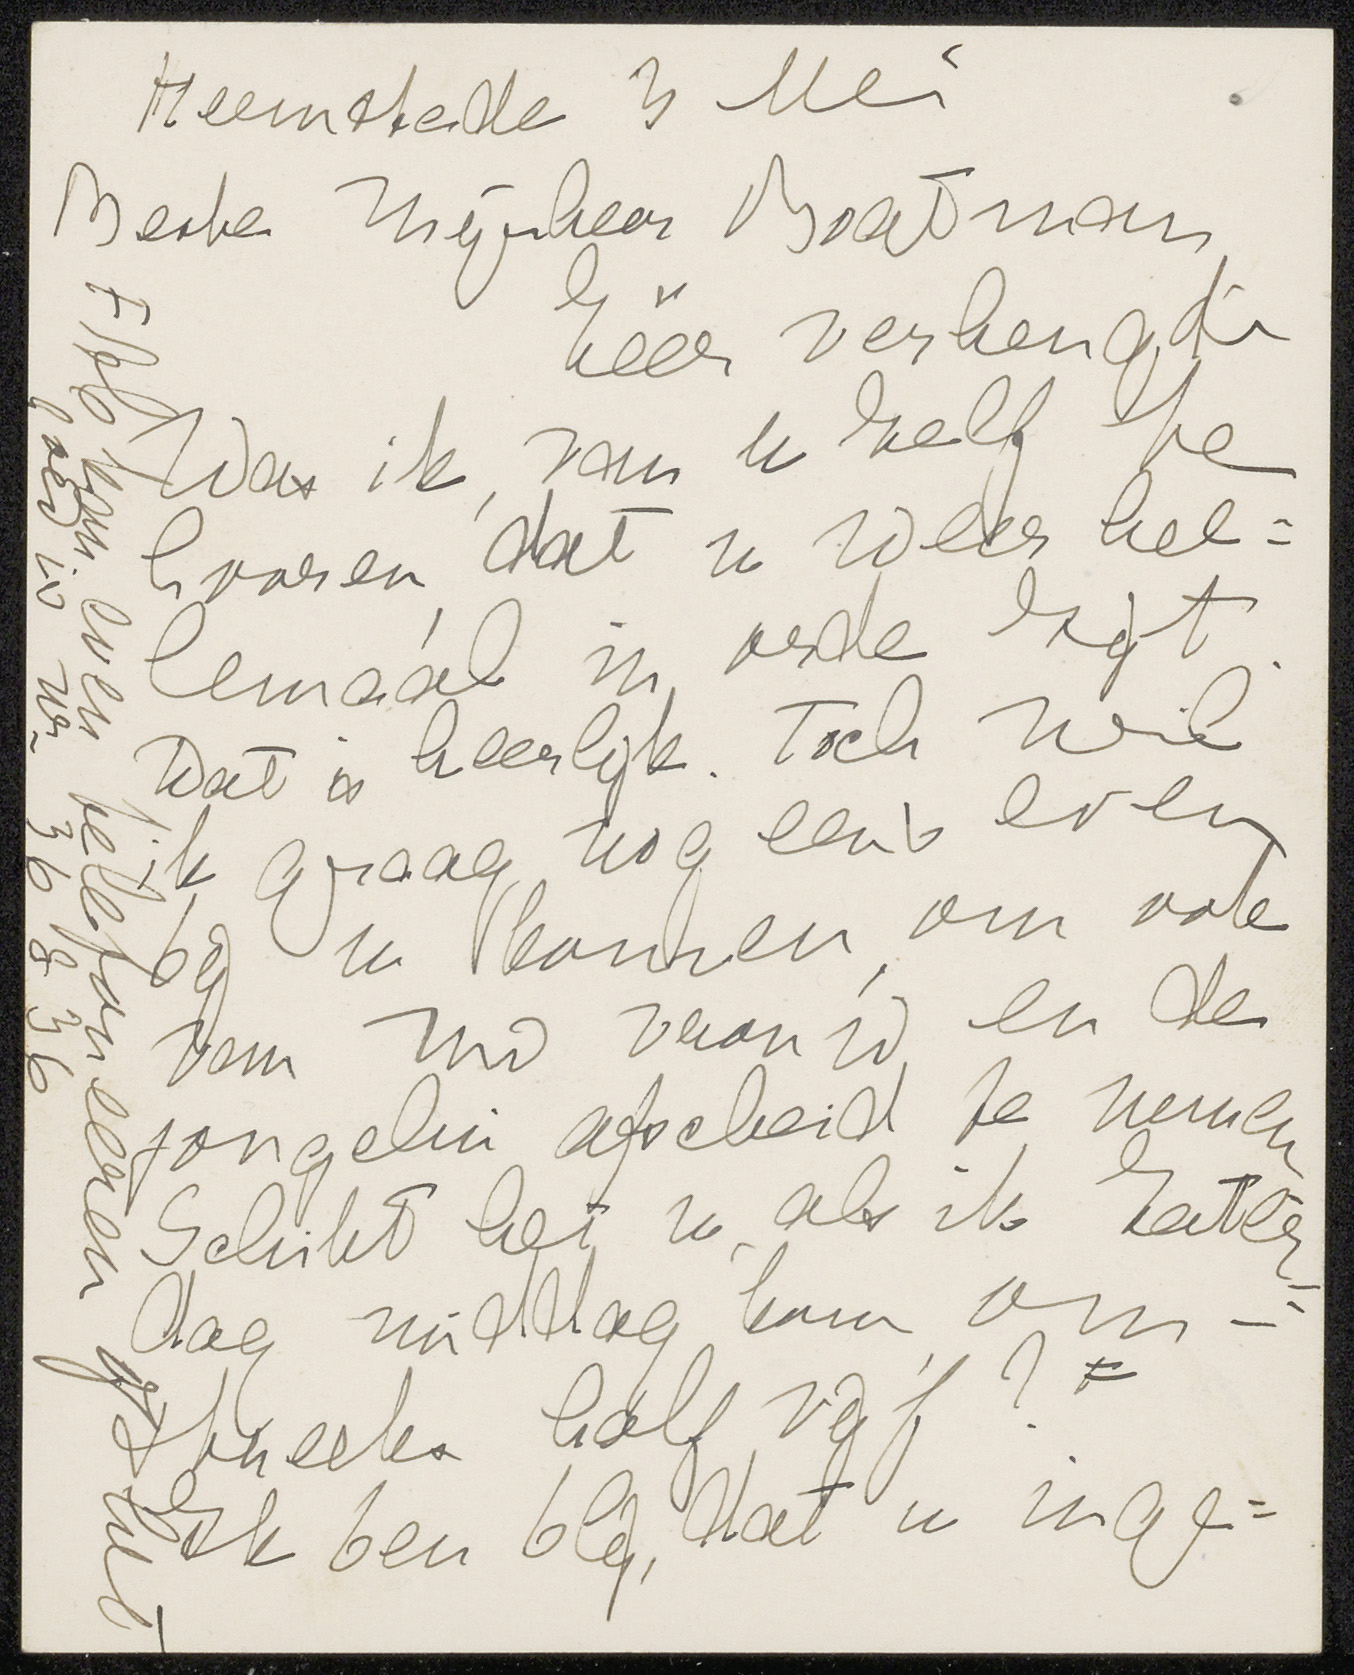 Heemstede 3 Mei
Beste Mijnheer Boatman,
Zéér verheugd
was ik, van u zelf te
hooren, dat u weer hee=
lemáál in orde zijt.
Dat is heerlijk. Toch wil
ik graag nog eens even
bij u komen, om ook
van en de
jongelui afscheid te nemen
Schikt het u, als ik Zater=
dag middag kom, om=
streeks half vijf? ≠
Ik ben blij, dat u inge=
≠ Ik kom even telefoneeren of het
goed is nr. 36836